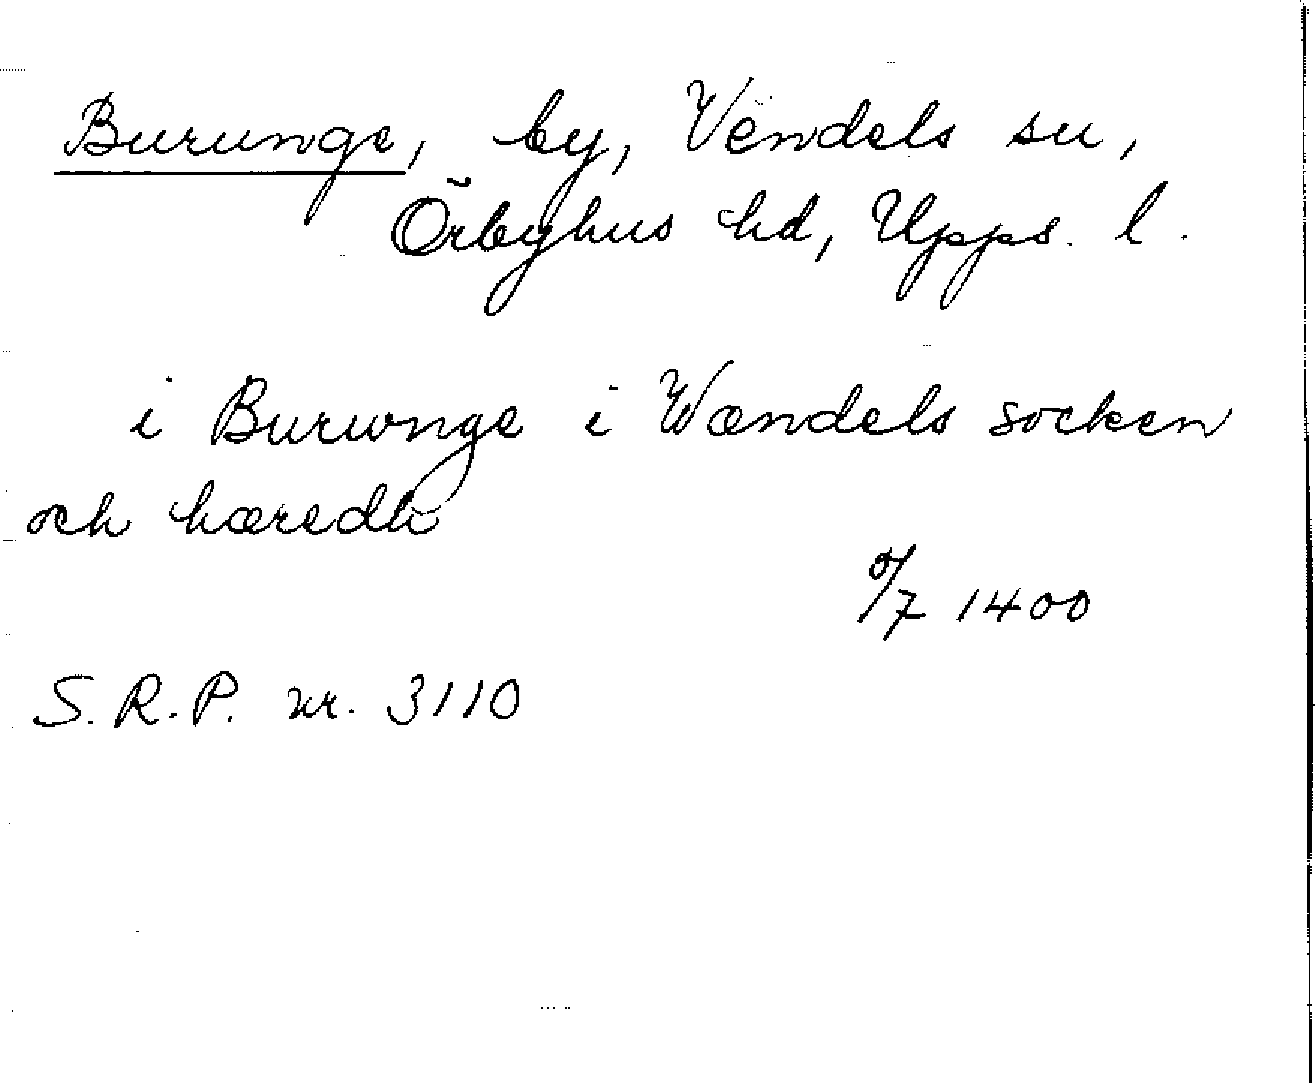 Burunge, by, Vendels sn,
Örbyhus hd, Upps. l.
i Burwnge i Wændels socken
och hæredh
0/7 1400
S. R. P. nr. 3110